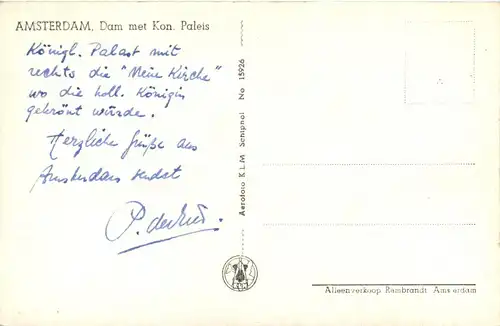 AMSTERDAM, Dam met Kon. Paleis
Königl. Palast mit
rechts die "Neue Kirche"
wo die holl. Königin
gekrönt wurde.
Herzliche Grüße aus
Amsterdam sendet
P.
Aerofoto K.L.M Schiphol No 15926
Alleenverkoop Rembrandt Amsterdam